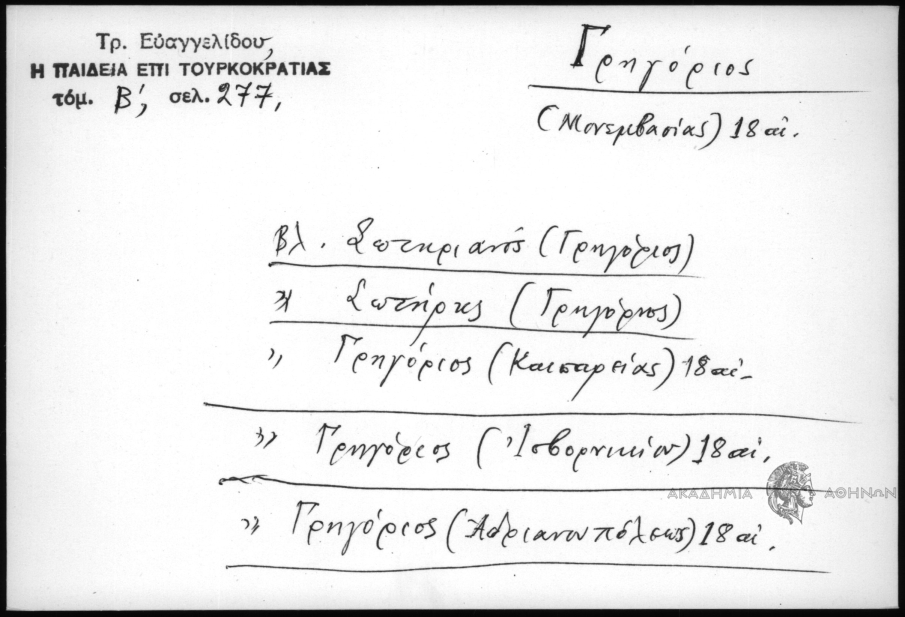 Τρ. Εὐαγγελίδου,
Η ΠΑΙΔΕΙΑ ΕΠΙ ΤΟΥΡΚΟΚΡΑΤΙΑΣ
τόμ. Β', σελ. 277,
Γρηγόριος
(Μονεμβασίας) 18 αἰ.
Βλ. Σωτηριανός (Γρηγόριος)
» Σωτήρης (Γρηγόριος)
» Γρηγόριος (Καισαρείας) 18 αἰ.
» Γρηγόριος (Ἰσβορνικίου) 18 αἰ.
ΑΚΑΔΗΜΙΑ ΑΘΗΝΩΝ
» Γρηγόριος (Ἀδριανουπόλεως) 18 αἰ.